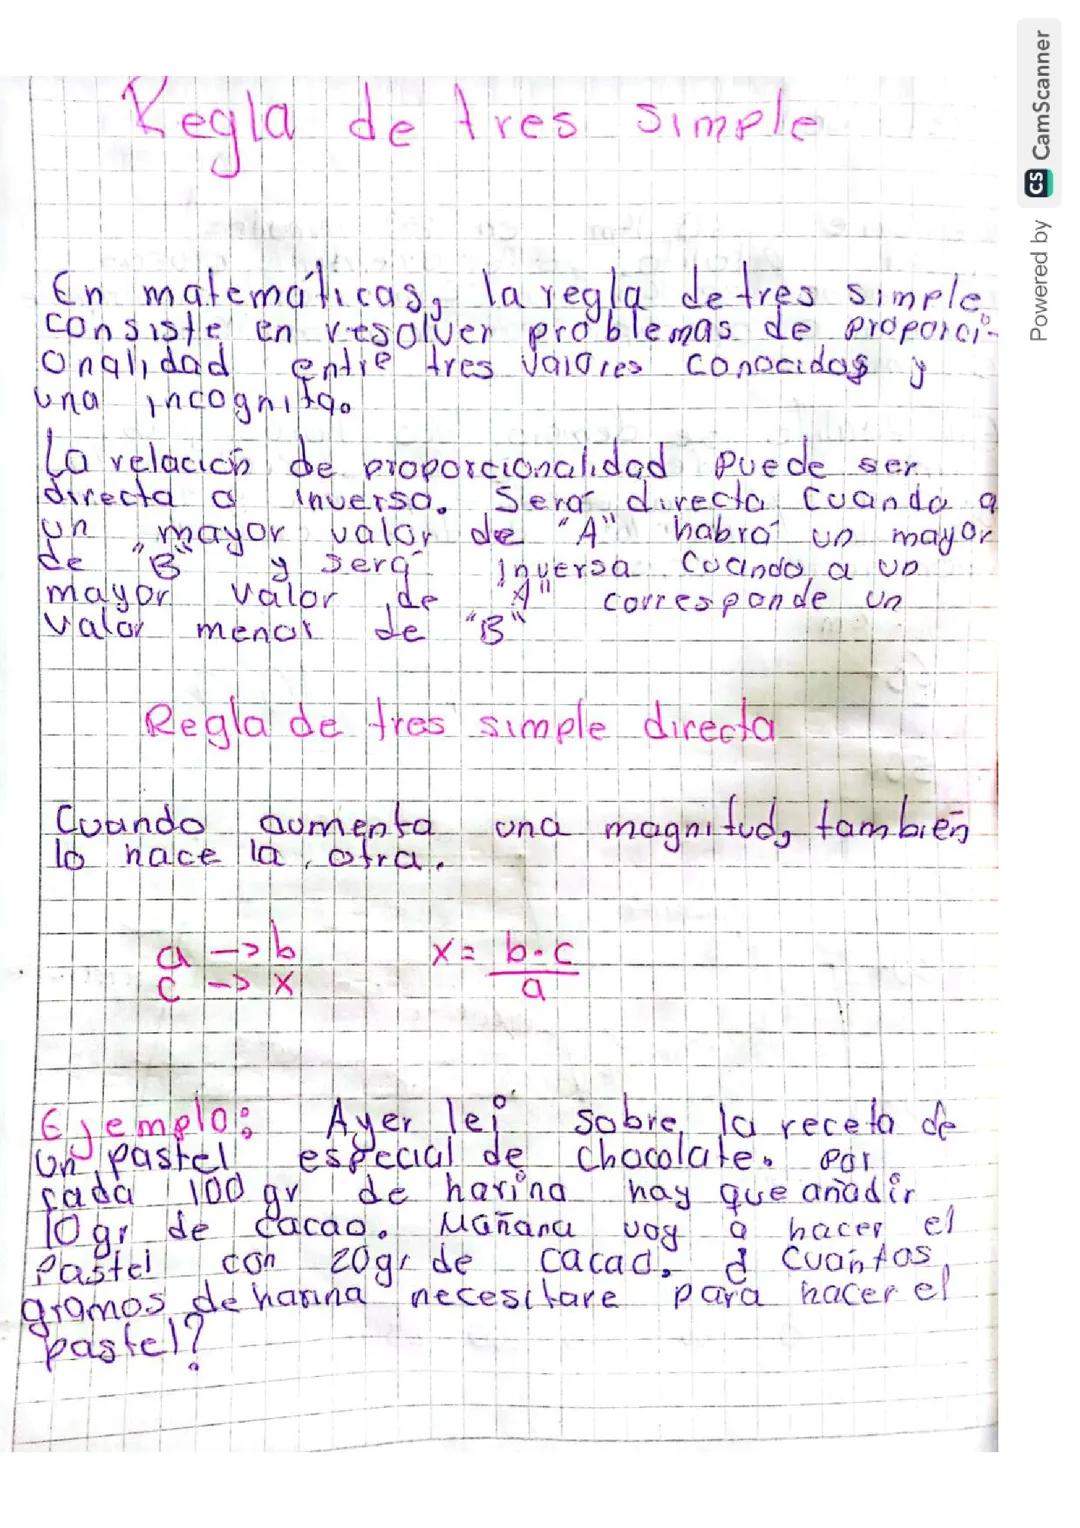 Regla de tres simple
En matemáticas, la regla de tres simple
consiste en resolver problemas de proporci-
onalidad entre tres valores conocidos y
una incognita.
La relación de proporcionalidad puede ser
directa o inversa. Será directa cuando a
un mayor valor de "A" habrá un mayor
de "B" y será inversa cuando, a un
mayor valor de "A" corresponde un
valor menor de "B"
Regla de tres simple directa
Cuando aumenta una magnitud, también
lo hace la otra.
a -> b x = b·c
c -> x a
Ejemplo: Ayer leí sobre la receta de
un pastel especial de chocolate. Por
cada 100 gr de harina hay que añadir
10 gr de cacao. Mañana voy a hacer el
Pastel con 20 gr de cacao. ¿ Cuántos
gramos de harina necesitare para hacer el
pastel?
Powered by CS CamScanner